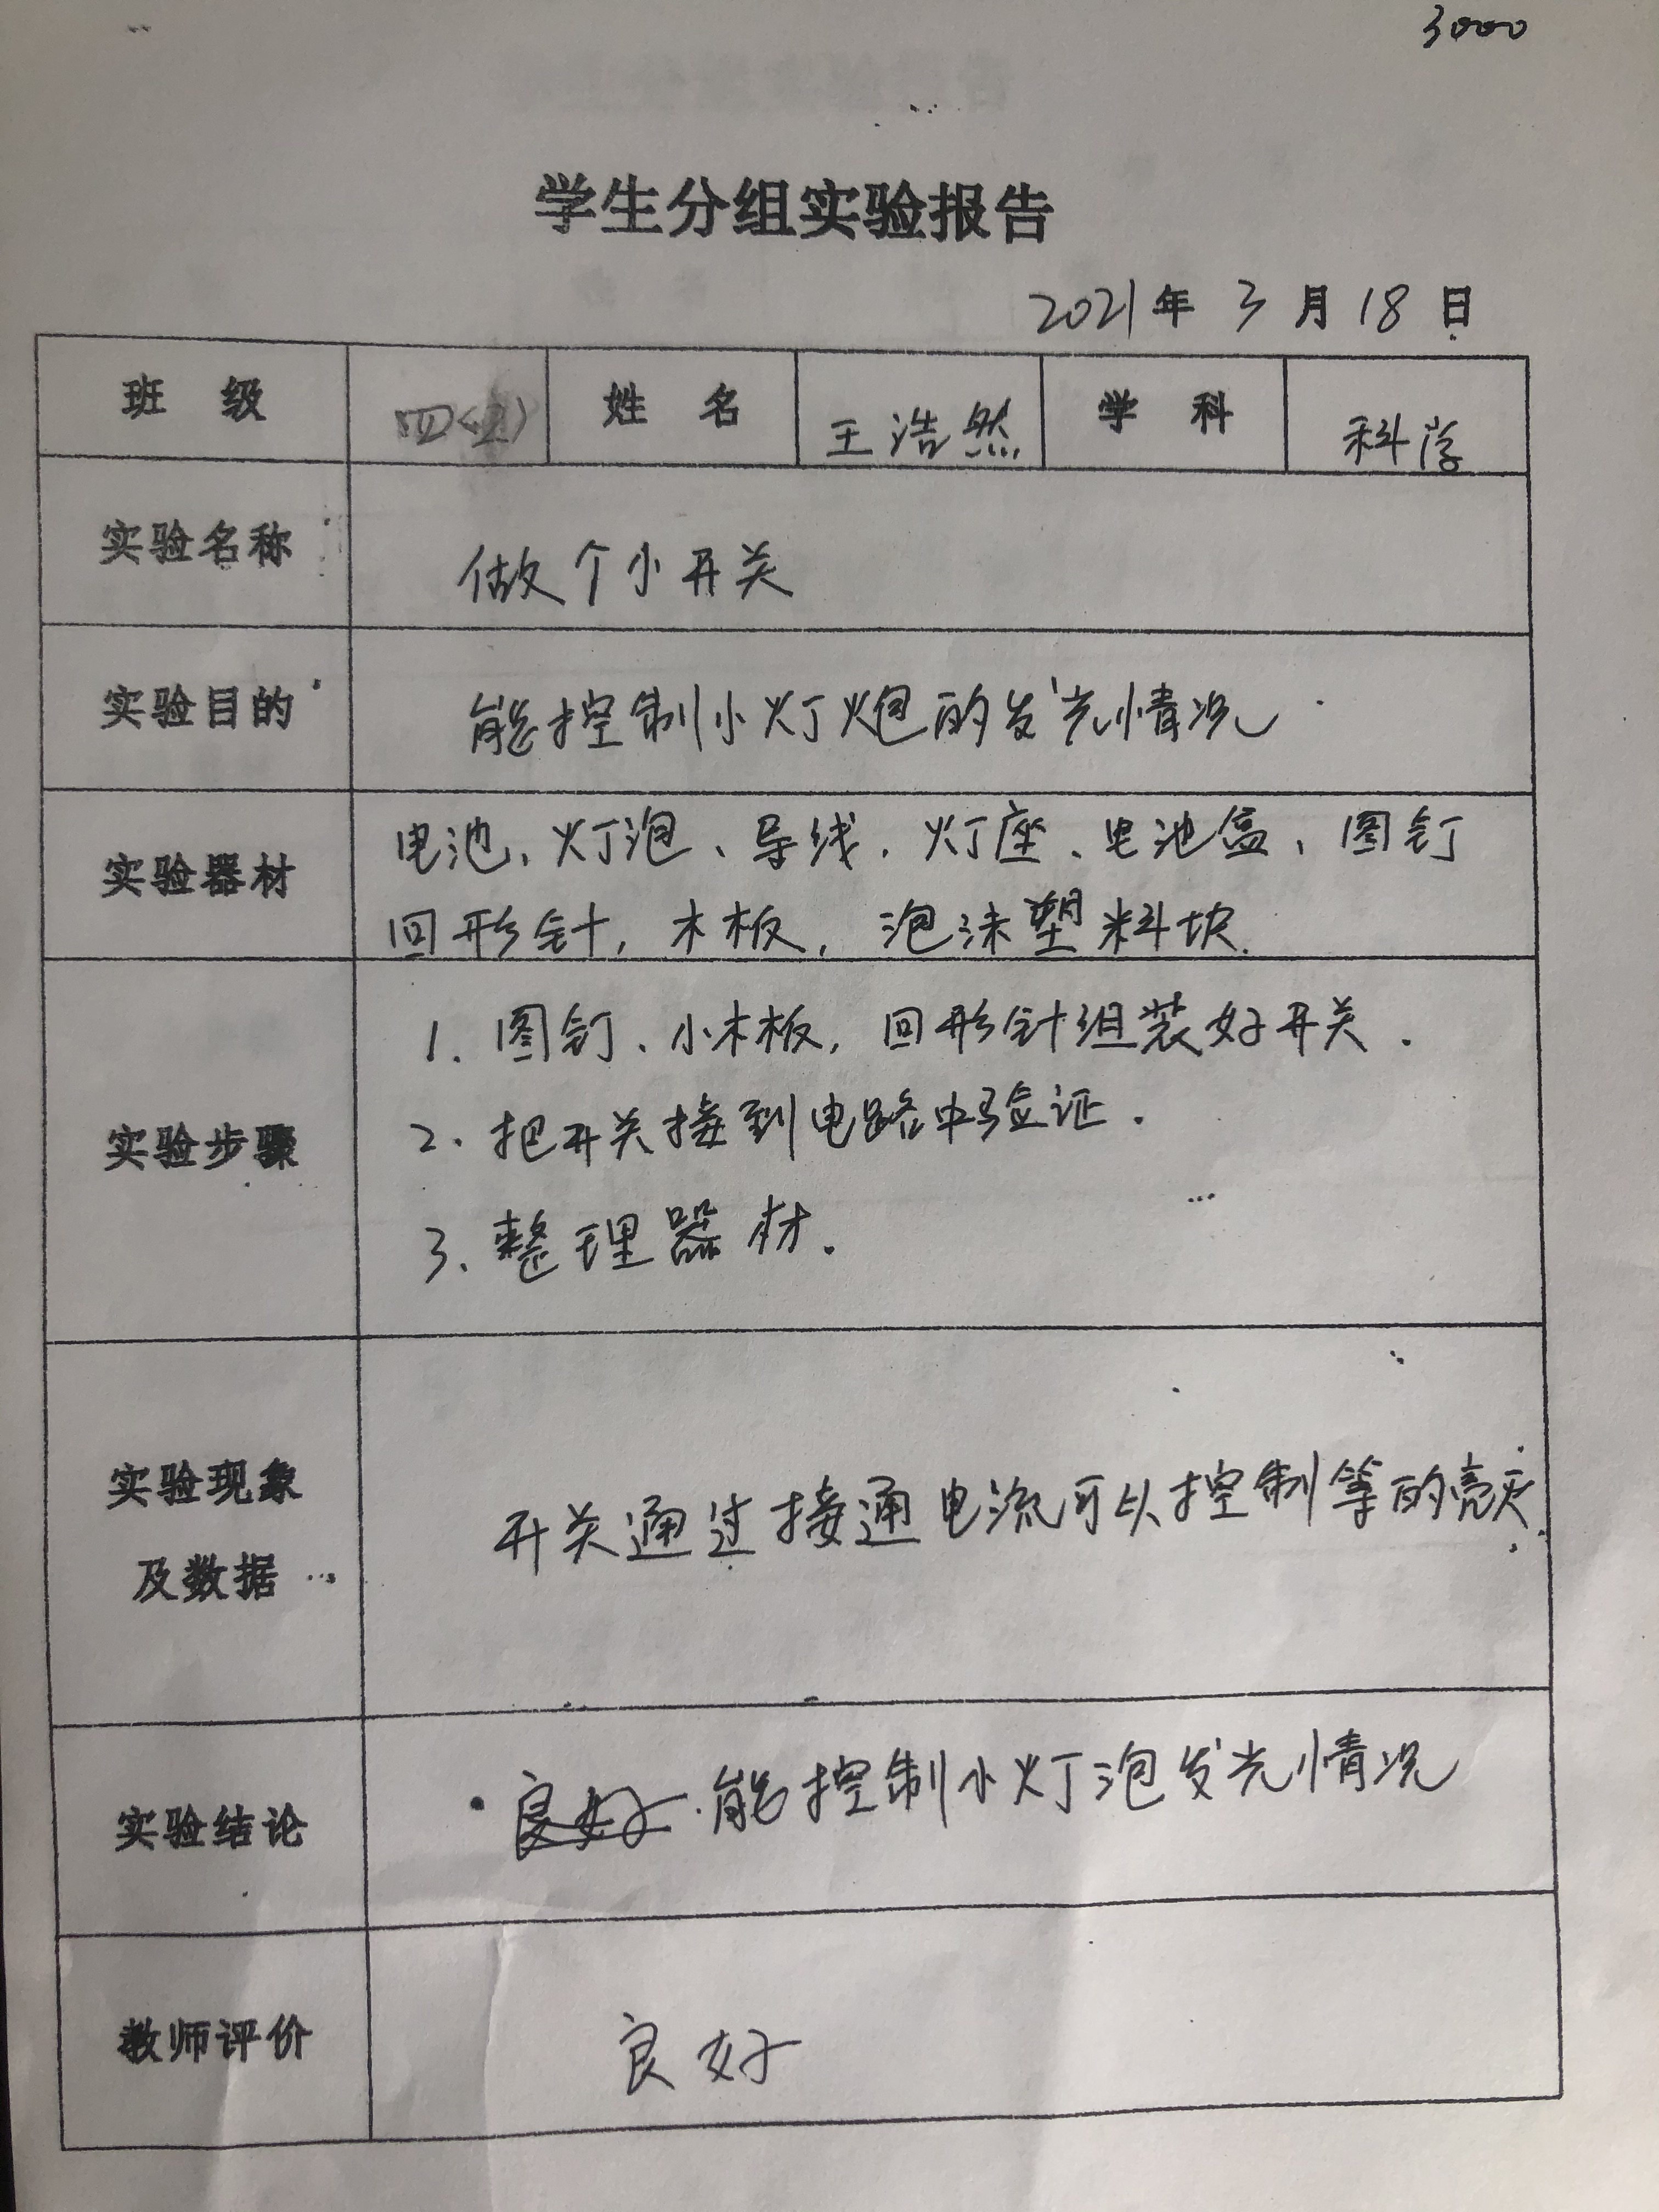 3000
学生分组实验报告
2021年 3 月 18 日
班 级 四<2> 姓 名 王浩然 学 科 科学
实验名称 做个小开关
实验目的 能控制小灯炮的发光情况
实验器材
电池、灯泡、导线、灯座、电池盒、图钉
回形针，木板，泡沫塑料块.
实验步骤
1、图钉、小木板，回形针组装好开关.
2、把开关接到电路中验证.
3、整理器材.
实验现象
及数据
开关通过接通电流可以控制等的亮灭.
实验结论 良好.能控制小灯泡发光情况
教师评价 良好